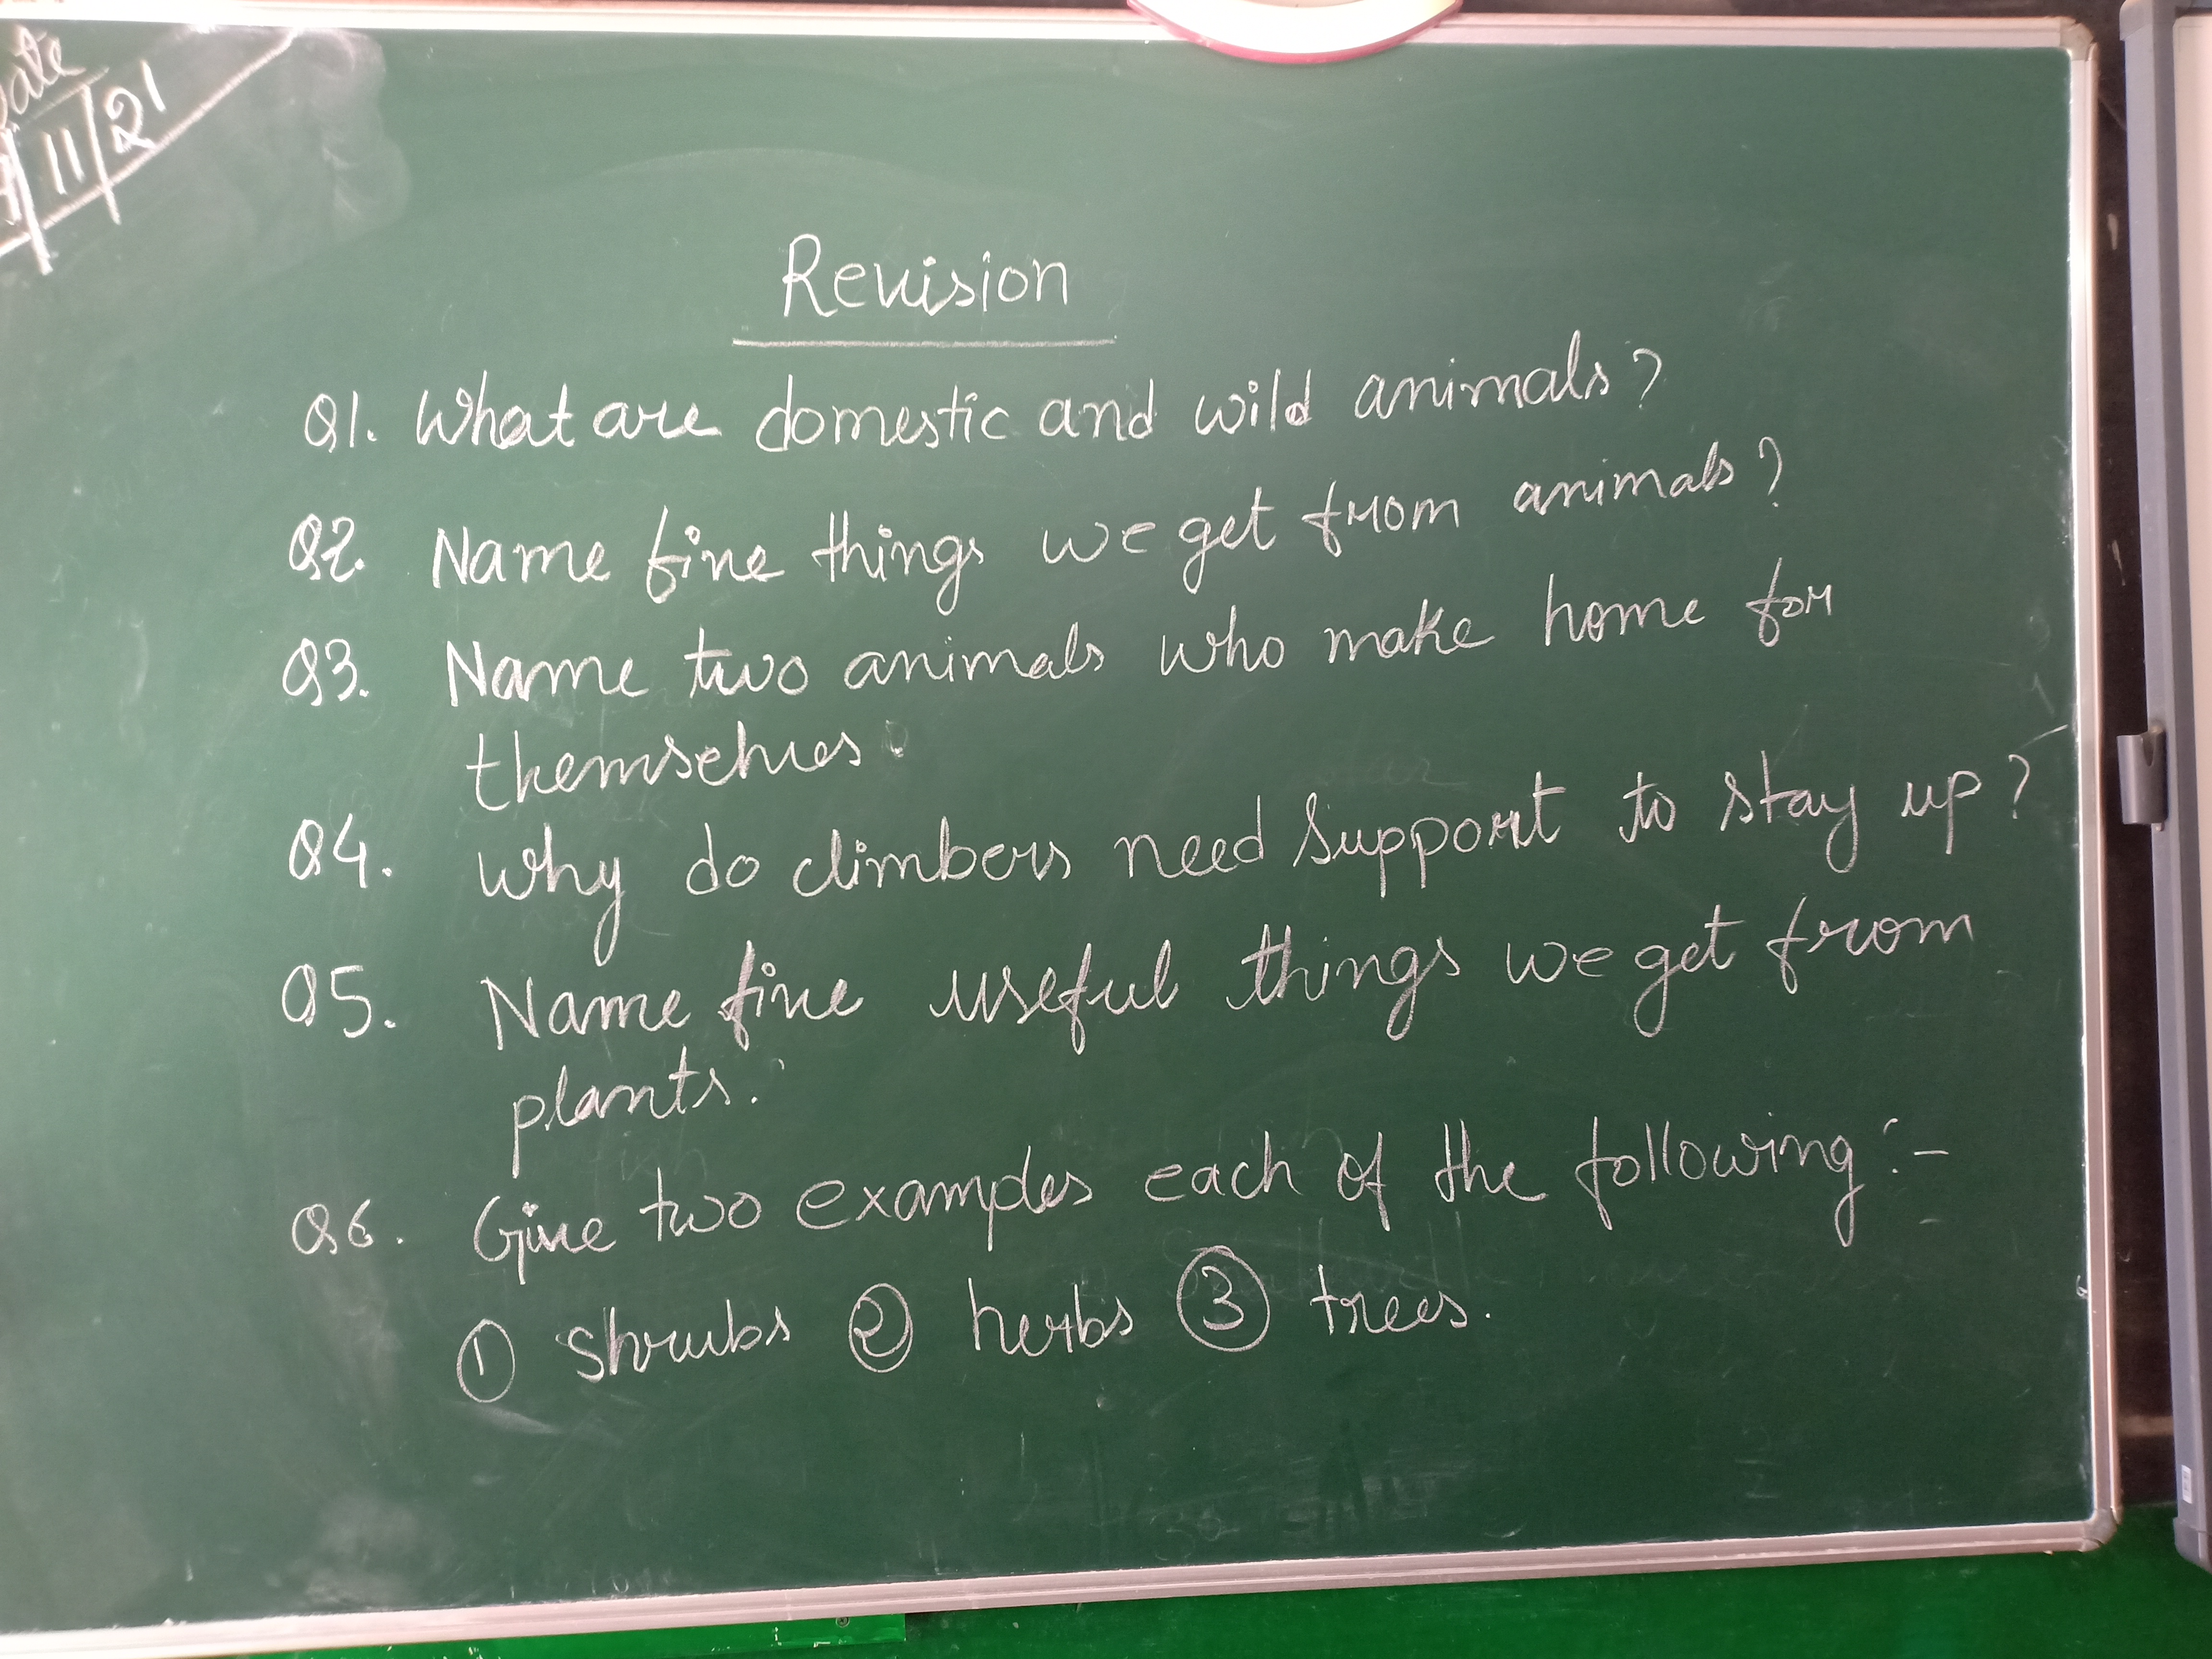 Date
/11/21
Revision
Q1. What are domestic and wild animals?
Q2. Name five things we get from animals?
Q3. Name two animals who make home for
themselves.
Q4. Why do climbers need support to stay up?
Q5. Name five useful things we get from
plants.
Q6. Give two examples each of the following :-
① shrubs ② herbs ③ trees.